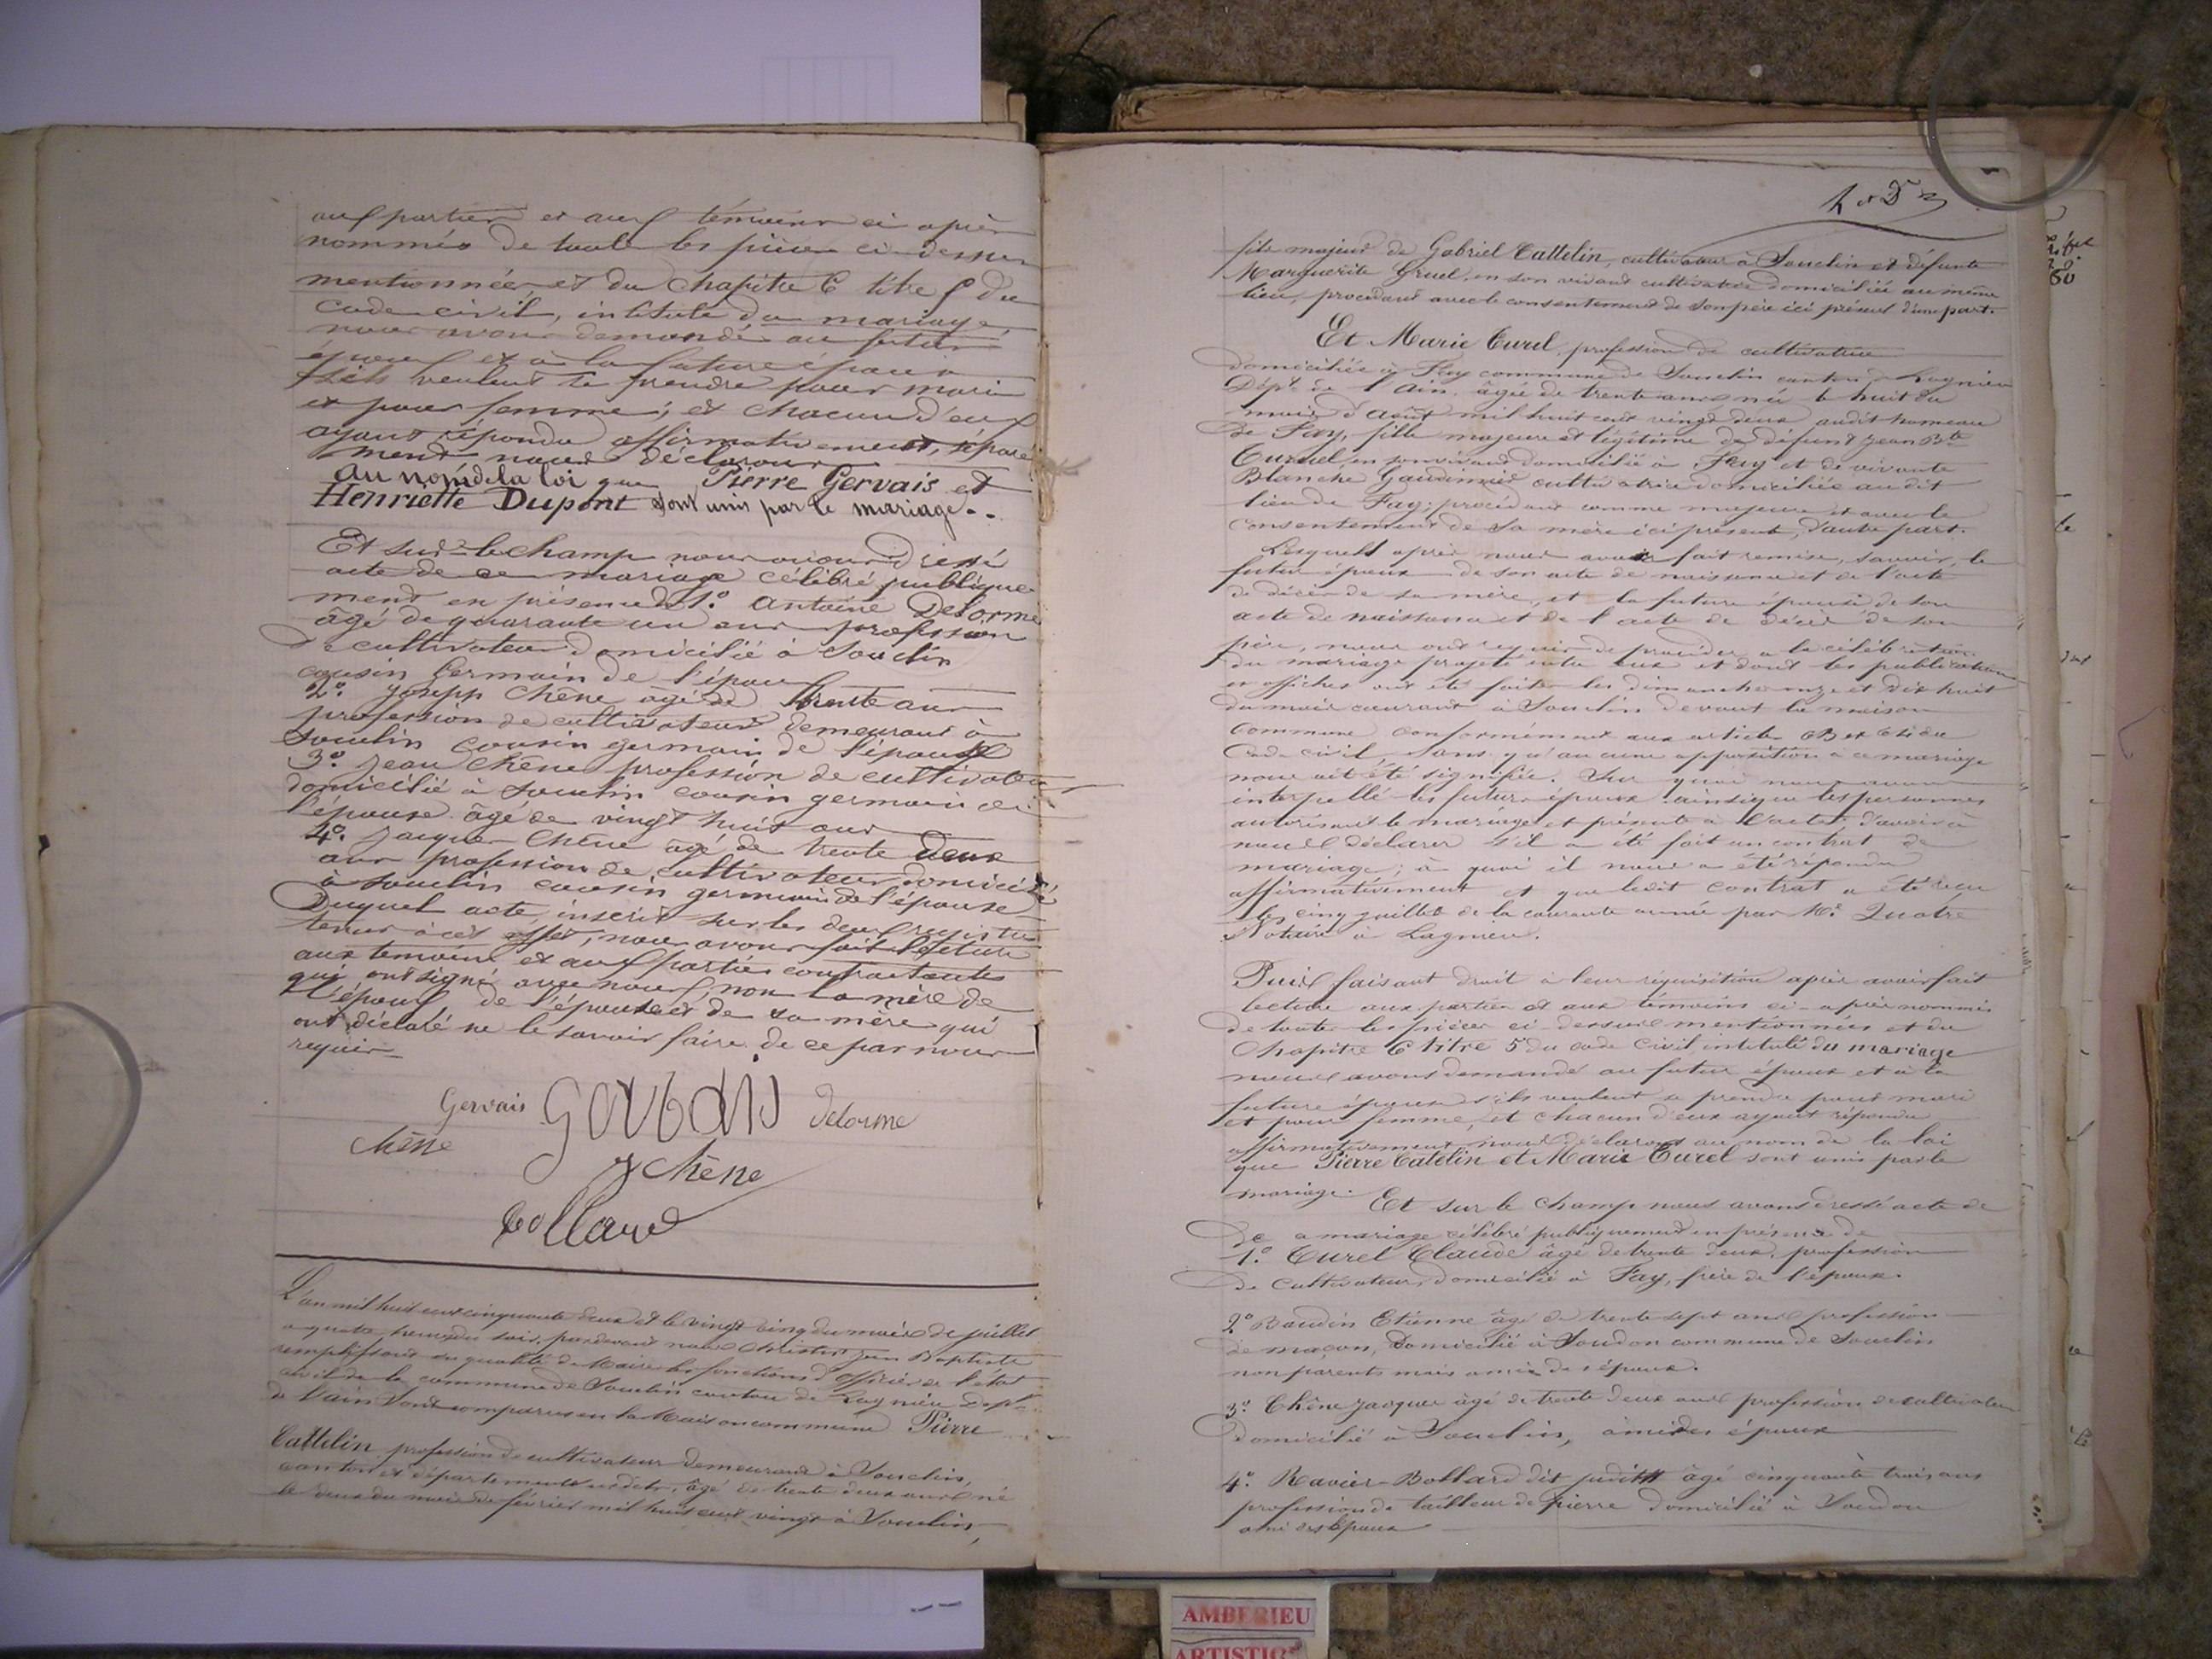 aux parties et aux témoins ci après
nommés de toute les pièces ci dessus
mentionnées et du Chapitre 6 titre 5 du
code civil, intitulé du mariage,
nous avons demandé au futur
époux et à la future épouse
s'ils veulent se prendre pour mari
et pour femme; et chacun d'eux
ayant répondu affirmativement, séparé
ment nous déclarons
au nom de la loi que Pierre Gervais et
Henriette Dupont sont unis par le mariage..
Et sur-le champ nous avons dressé
acte de ce mariage célébré publique
ment en présence de 1.° Antoine Delorme
âgé de quarante un ans profession
de cultivateur domicilié à Souclin
cousin Germain de l'époux
2.° Joseph Chêne âgé de trente ans
profession de cultivateur demeurant à
Souclin cousin germain de l'épouse
3.° Jean Chêne profession de cultivateur
domicilié à Souclin cousin germain de
l'épouse âgé de vingt huit ans
4.° Jacques Chêne âgé de trente deux
ans profession de cultivateur domicilié
à Souclin cousin germain de l'épouse
Duquel acte, inscrit sur les deux registres
tenus à cet effet, nous avons fait lecture
aux temoins et aux parties contractantes
qui ont signé avec nous non la mère de
l'époux de l'épouse et de sa mère qui
ont déclaré ne le savoir faire de ce par nous
requis
Gervais Delorme
Chêne
J Chêne
Bollard
L'an mil huit cent cinquante deux et le vingt cinq du mois de juillet
a quatre heures du soir, pardevant nous Jean Baptiste
remplissant en qualité de Maire les fonctions d'officier de l'état
civil de la commune de Souclin canton de Lagnieu Dép.t
de l'ain sont comparus en la Maison commune Pierre
Cattelin profession de cultivateur demeurant à Souclin,
canton et département susdits, âgé de trente deux ans né
le deux du mois de février mil huit cent vingt à Souclin,
fils majeur de Gabriel Cattelin, cultivateur à Souclin et défunte
Marguerite Gruel, en son vivant cultivatrice domiciliée au même
lieu, procédant avec le consentement de son père ici présent d'une part.
Et Marie Curel, profession de cultivatrice
domiciliée à Fay commune de Souclin canton de Lagnieu
Dép.t de l'Ain, âgée de trente ans née le huit du
mois d'Août mil huit cent vingt deux audit hameau
de Fay, fille majeure et légitime de défunt Jean Bte
Curel, en son vivant domicilié à Fay et de vivante
Blanche cultivatrice domiciliée au dit
lieu de Fay, procédant comme majeure et avec le
consentement de sa mère ici présente, d'autre part.
Lesquels après nous avoir fait remise, savoir, le
futur époux de son acte de naissance et de l'acte
de décès de sa mère, et la future épouse de son
acte de naissance et de l'acte de décès de son
père, nous ont requis de procéder a la célébration
du mariage projeté entre eux et dont les publications
et affiches ont été faites les dimanche onze et dix huit
du mois courant à Souclin devant la maison
commune conformément aux articles du
Code civil, sans qu'aucune opposition à ce mariage
nous ait été signifiée. Sur quoi nous avons
interpellé les futurs époux ainsi que les personnes
autorisant le mariage et présente a l'acte d'avoir à
nous déclarer s'il a été fait un contrat de
mariage; à quoi il nous a été répondu
affirmativement et que ledit contrat a été reçu
le cinq juillet de la courante année par M.e Quatre
Notaire à Lagnieu.
Puis faisant droit à leur réquisition après avoir fait
lecture aux parties et aux témoins ci-après nommés
de toute les pièces ci-dessus mentionnées et du
Chapitre 6 titre 5 du code civil intitulé du mariage
nous avons demandé au futur époux et à la
future épouse s'ils veulent se prendre pour mari
et pour femme, et chacun d'eux ayant répondu
affirmativement nous déclarons au nom de la loi
que Pierre Catelin et Marie Curel sont unis par le
mariage. Et sur le champ nous avons dressé acte de
de ce mariage célébré publiquement en présence de
1.° Curel Claude âgé de trente deux, profession
de cultivateur, domicilié à Fay, frère de l'épouse.
2.° Baudin Etienne âgé de trente sept ans profession
de maçon, domicilié à Soudon commune de Souclin
non parents mais amis de l'époux.
3.° Chêne Jacques âgé de trente deux ans profession de cultivateur
domicilié à Souclin, ami des époux
4.° Ravier-Bollard dit âgé cinquante trois ans
profession de tailleur de pierre domicilié à Soudon
ami des époux
AMBERIEU
ARTISTIC